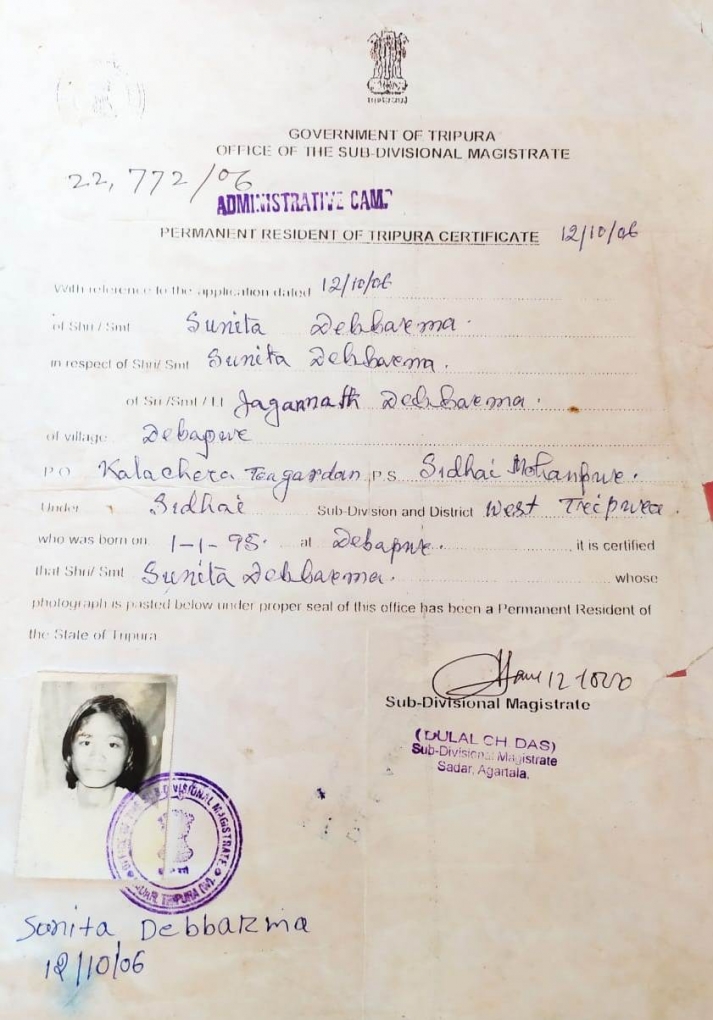 GOVERNMENT OF TRIPURA
OFFICE OF THE SUB-DIVISIONAL MAGISTRATE
22,772/06
ADMINISTRATIVE CAMP
PERMANENT RESIDENT OF TRIPURA CERTIFICATE 12/10/06
With reference to the application dated 12/10/06
of Shri / Smt Sunita Debbarma.
in respect of Shri/ Smt Sunita Debbarma.
of Sri /Smt / Lt Jagannath Debbarma.
of village Debapur
P.O. Kalachera Teagardan P.S. Sidhai Mohanpur.
Under Sidhai Sub-Division and District West Tripura.
who was born on 1-1-95. at Debapur. it is certified
that Shri/ Smt Sunita Debbarma. whose
photograph is pasted below under proper seal of this office has been a Permanent Resident of
the State of Tripura
Sub-Divisional Magistrate
(DULAL CH. DAS)
Sub-Divisional Magistrate
Sadar, Agartala.
Sunita Debbarma
12/10/06